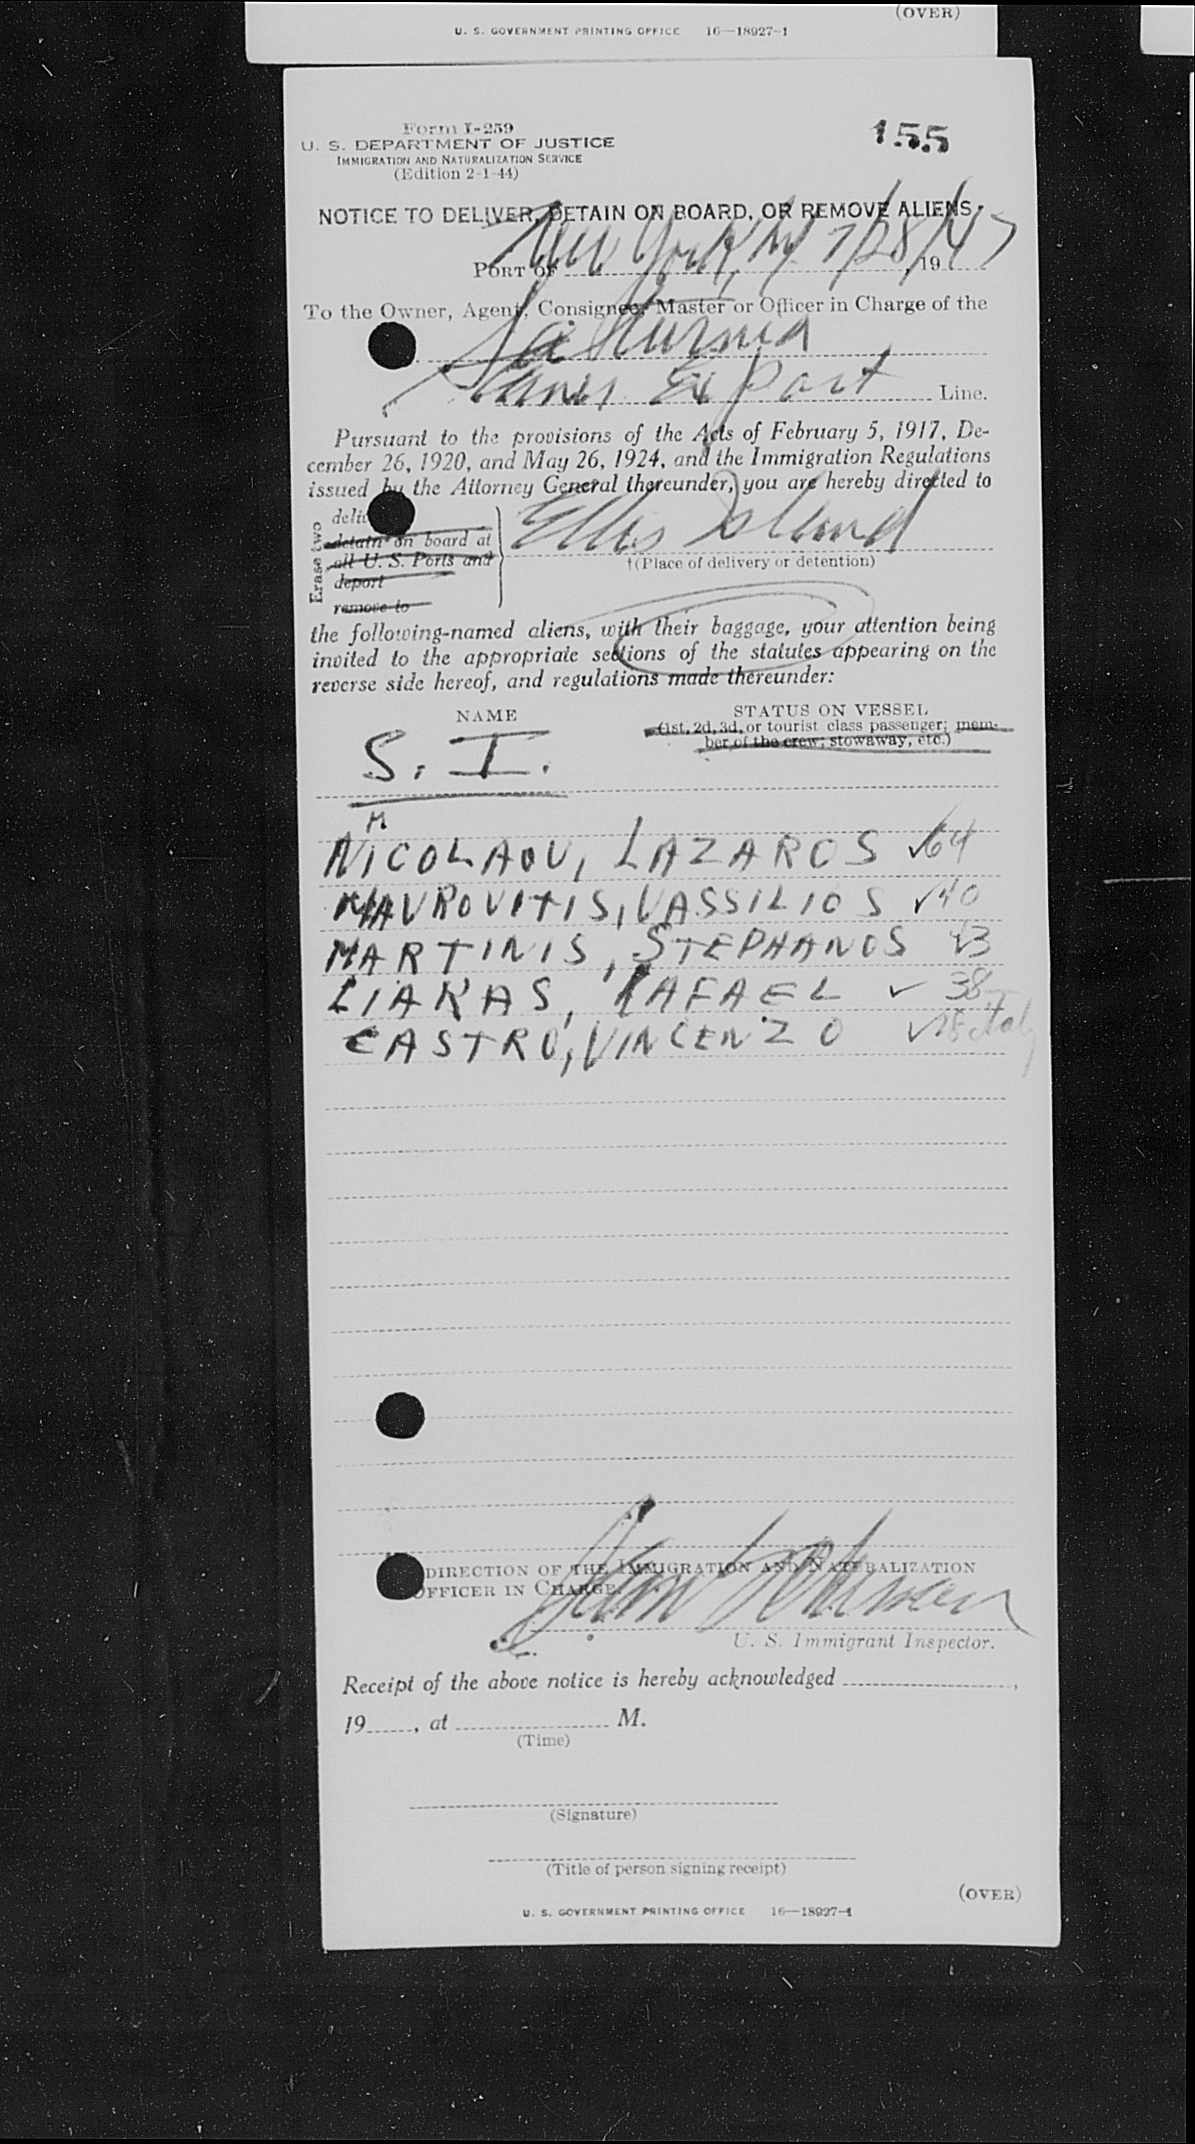 (OVER)
U. S. GOVERNMENT PRINTING OFFICE 16—18927-1
Form I-259
U. S. DEPARTMENT OF JUSTICE
IMMIGRATION AND NATURALIZATION SERVICE
(Edition 2-1-44)
155
NOTICE TO DELIVER, DETAIN ON BOARD, OR REMOVE ALIENS
PORT OF New York, NY 7/28/47, 19
To the Owner, Agent, Consignee, Master or Officer in Charge of the
Saturnia
Amer Export Line.
Pursuant to the provisions of the Acts of February 5, 1917, De-
cember 26, 1920, and May 26, 1924, and the Immigration Regulations
issued by the Attorney General thereunder, you are hereby directed to
Erase two
deliv
detain on board at
all U. S. Ports and
deport
remove to
Ellis Island
†(Place of delivery or detention)
the following-named aliens, with their baggage, your attention being
invited to the appropriate sections of the statutes appearing on the
reverse side hereof, and regulations made thereunder:
NAME
STATUS ON VESSEL
(1st, 2d, 3d, or tourist class passenger; mem-
ber of the crew; stowaway, etc.)
S. I.
M
NICOLAOU, LAZAROS ✓64
MAVROVITIS, VASSILIOS ✓40
MARTINIS, STEPHANOS 43
LIAKAS, RAFAEL ✓ 38
CASTRO, VINCENZO ✓ Italy
DIRECTION OF THE IMMIGRATION AND NATURALIZATION
OFFICER IN CHARGE.
U. S. Immigrant Inspector.
Receipt of the above notice is hereby acknowledged ,
19 , at M.
(Time)
(Signature)
(Title of person signing receipt)
(OVER)
U. S. GOVERNMENT PRINTING OFFICE 16—18927-1